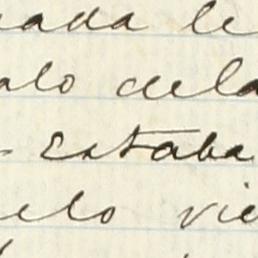 nada le
alo dela
estaba
elo vie